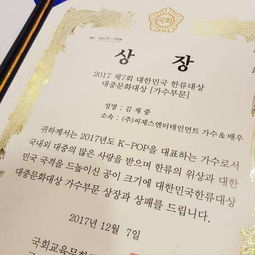 상 장
2017 제7회 대한민국 한류대상
대중문화대상 [가수부문]
성명 : 김 재 중
소속 : (주)씨제스엔터테인먼트 가수&배우
귀하께서는 2017년도 K-POP을 대표하는 가수로서
국내외 대중의 많은 사랑을 받으며 한류의 위상과 대한
민국 국격을 드높이신 공이 크기에 대한민국한류대상
대중문화대상 가수부문 상장과 상패를 드립니다.
2017년 12월 7일
국회교육문화